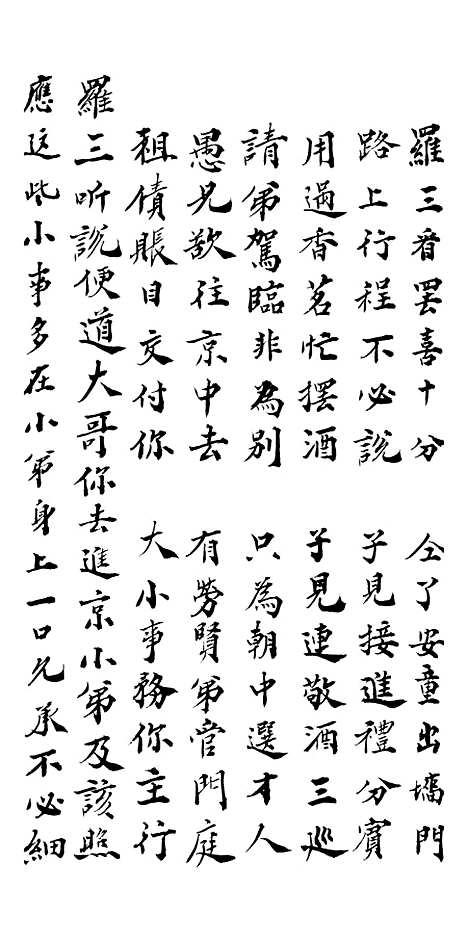 羅三看罷喜十分　仝了安童出墻門
路上行程不必說　子見接進禮分賓
用過香茗忙摆酒　子見連敬酒三巡
請弟駕臨非為別　只為朝中選才人
愚兄欲往京中去　有勞賢弟管門庭
租債賬目交付你　大小事務你主行
羅三听說便道大哥你去進京小弟及該照
應這些小事多在小弟身上一口允承不必細